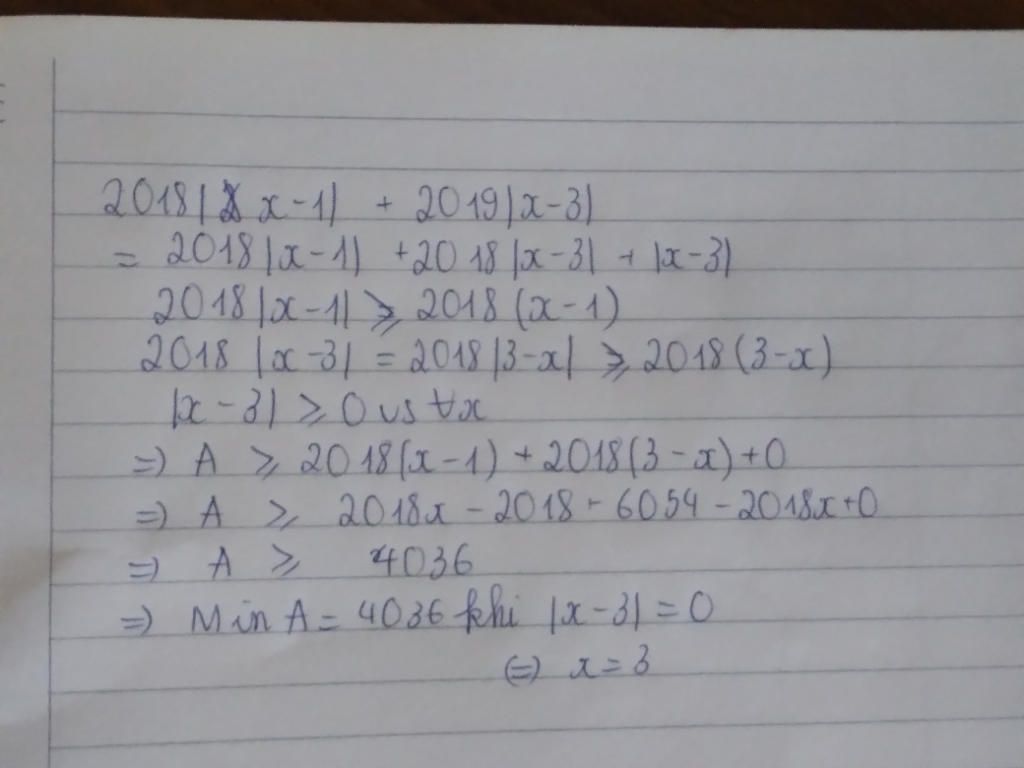 2018|x-1| + 2019|x-3|
= 2018|x-1| +2018|x-3| + |x-3|
2018|x-1| ≥ 2018(x-1)
2018 |x-3| = 2018|3-x| ≥ 2018(3-x)
|x-3| ≥ 0 vs ∀x
=) A ≥ 2018(x-1) + 2018(3-x)+0
=) A ≥ 2018x - 2018 - 6054 - 2018x+0
=) A ≥ 4036
=) Min A = 4036 khi |x-3| = 0
(=) x = 3